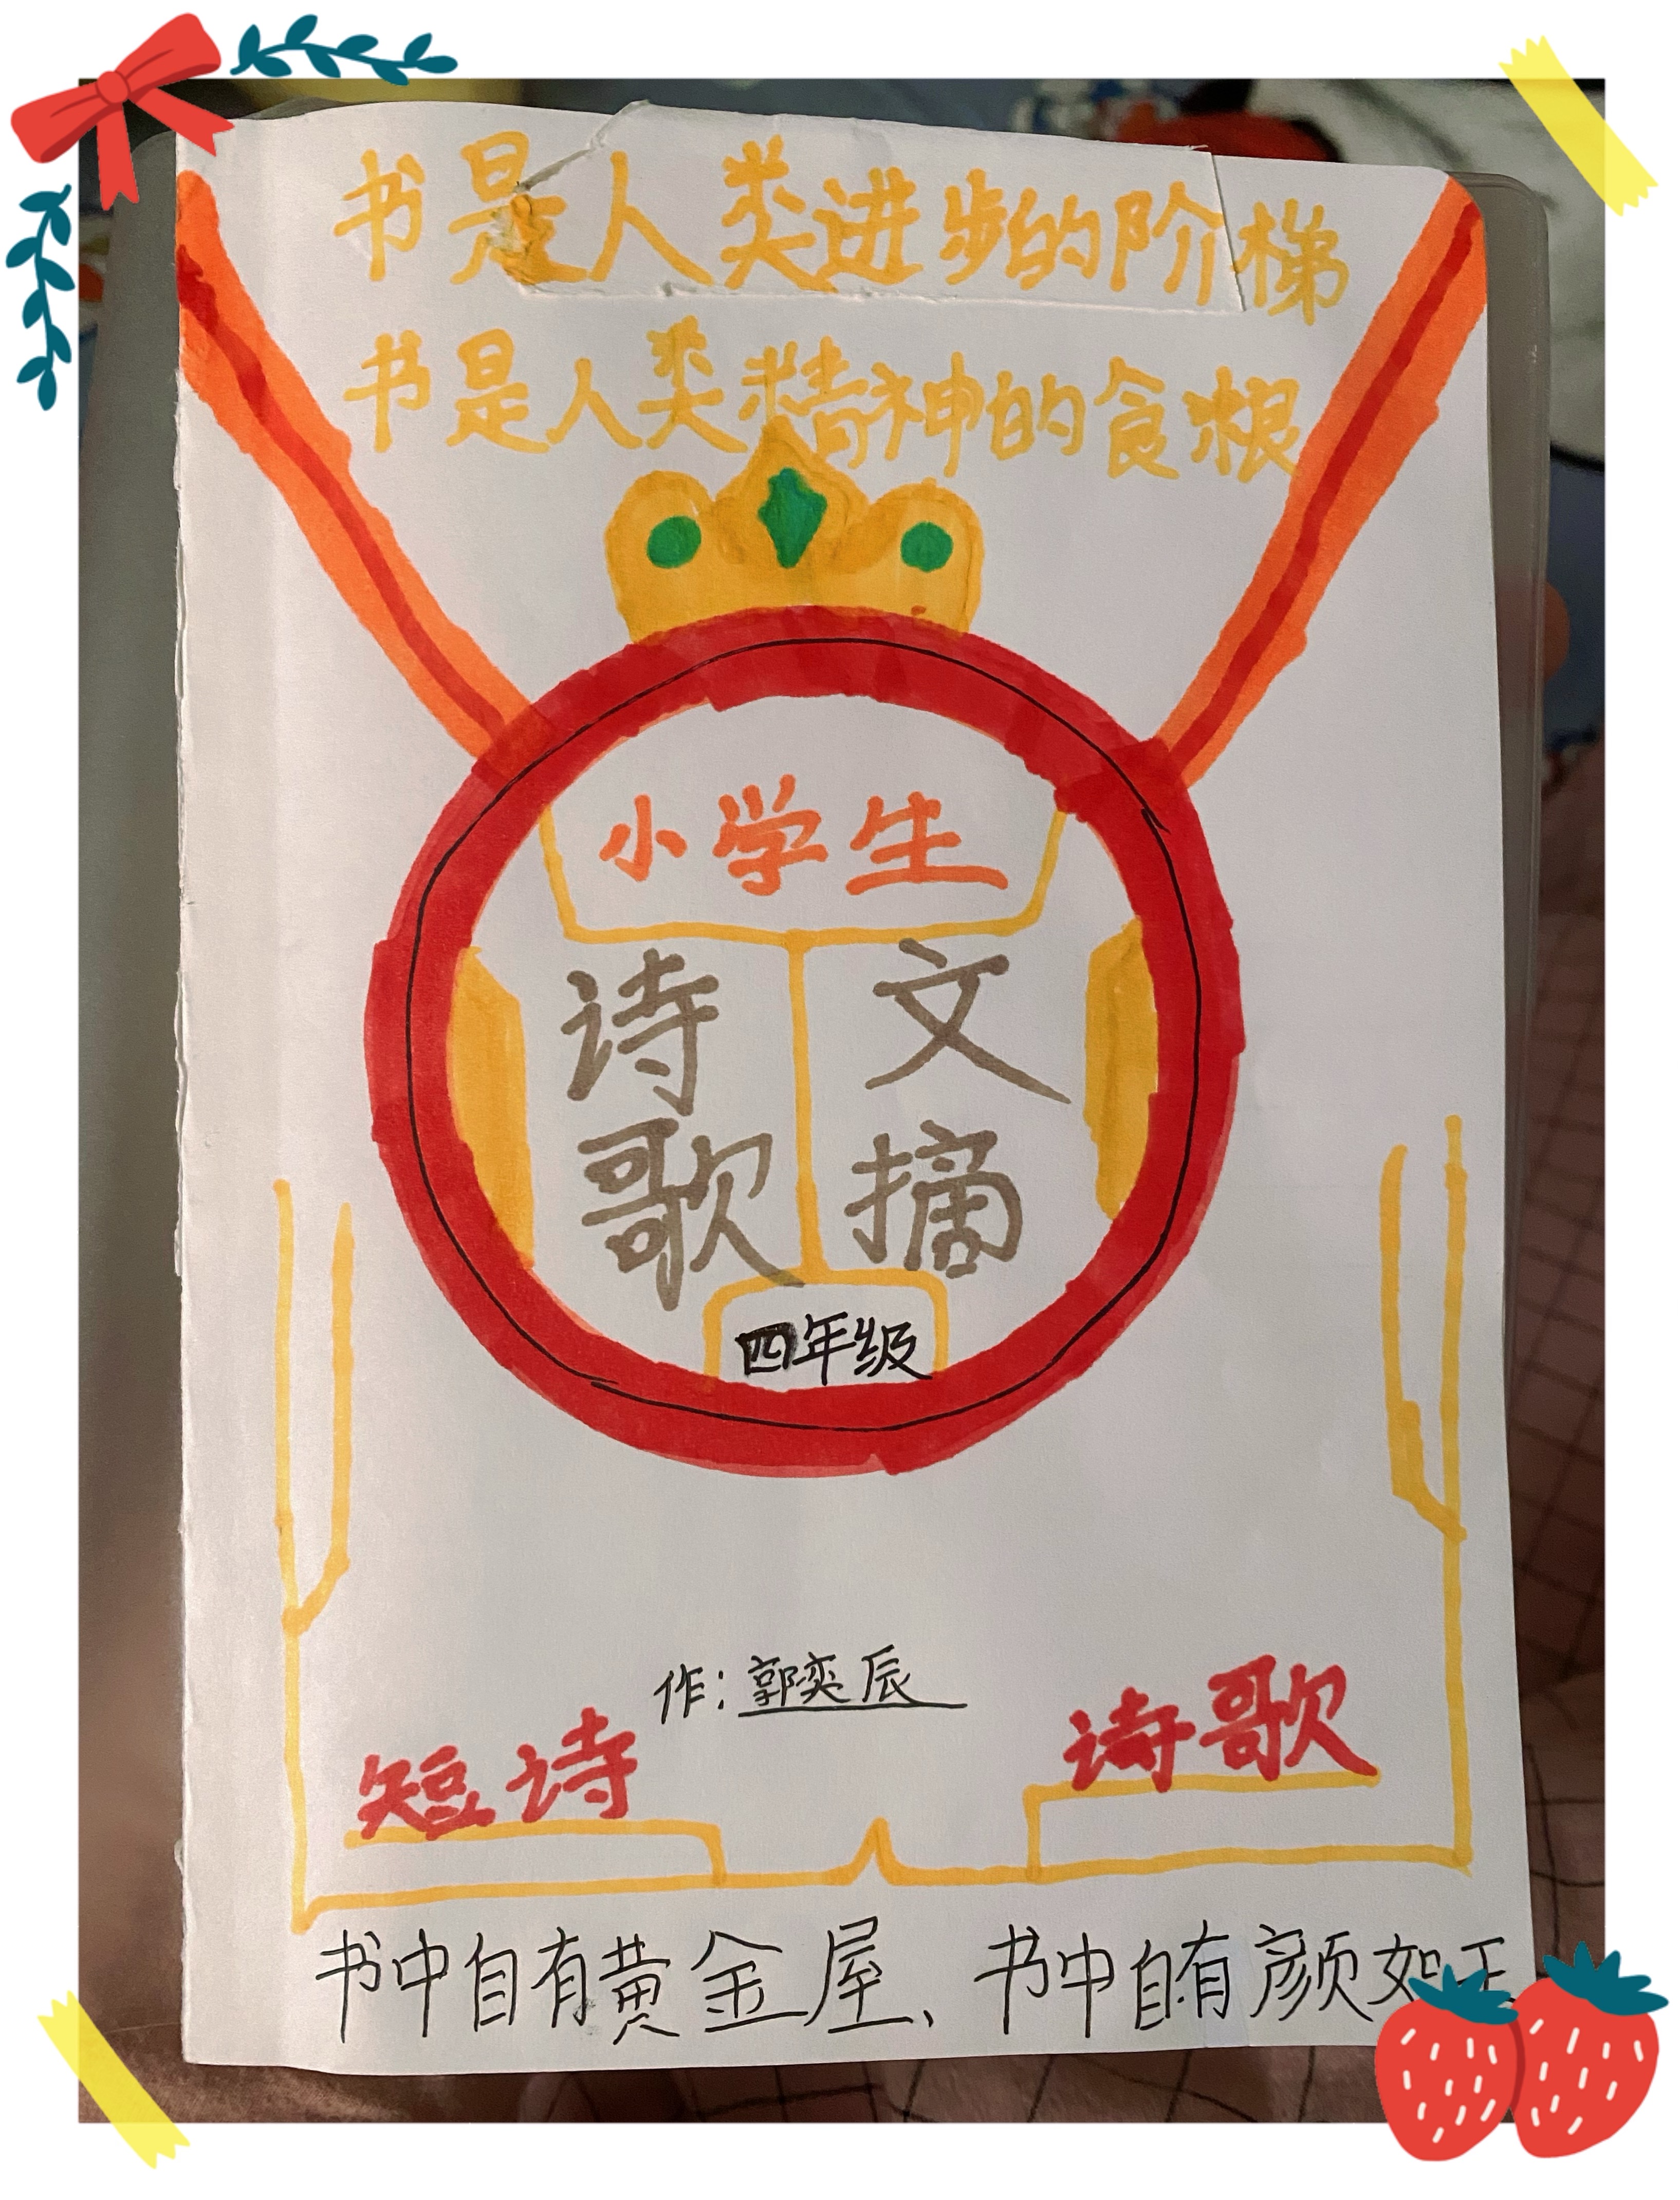 书是人类进步的阶梯
书是人类精神的食粮
小学生
诗歌
文摘
四年级
作：郭奕辰
短诗
诗歌
书中自有黄金屋、书中自有颜如玉